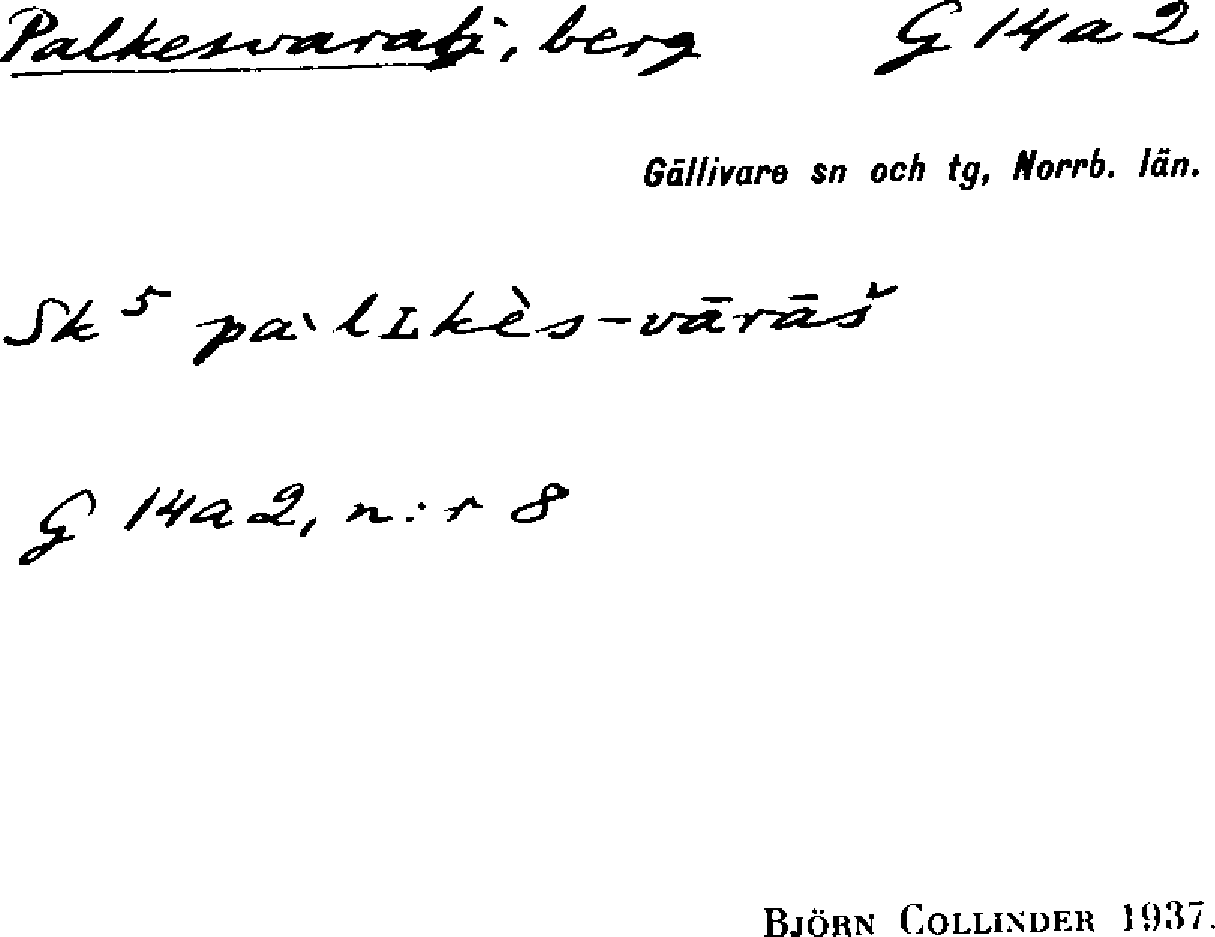 Palkesvaratj, berg G 14a2
Gällivare sn och tg, Norrb. län.
Sk 5 pa`lɪkès-vārāš̌
G 14a2, n:r 8
BJÖRN COLLINDER 1937.